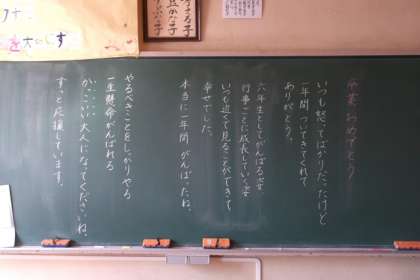 卒業おめでとう
いつも怒ってばかりだったけど
一年間ついてきてくれて
ありがとう。
六年生としてがんばる姿
行事ごとに成長していく姿
いつも近くで見ることができて
幸せでした。
本当に一年間がんばったね。
やるべきことをしっかりやる
一生懸命がんばれる
かっこいい大人になってくださいね。
ずっと応援しています。